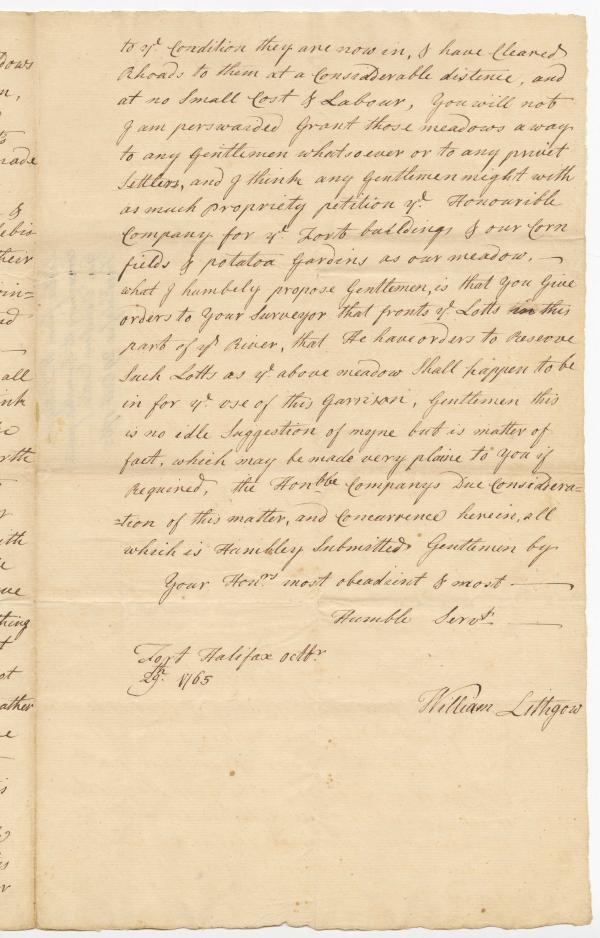 dows
n,
ts
rade
&
lebis
their
in=
ed
all
ink
e
rth
r
ith
e
ve
thing
t
ot
ather
e
is
us
r
to yͤ Condition they are now in, & have Cleared
Rhoads to them at a Considderable distence, and
at no Small Cost & Labour, You will not
I am perswaided Grant those meadows away
to any Gentlemen whatsoever or to any privet
Settlers, and I think any Gentlemen might with
as much propriety petition yͤ Honourible
Company for yͤ Fort buildings & our Corn
fields & potatoa Gardins as our meadow. —
what I humbely propose Gentlemen, is that You Give
orders to Your Surveyor that fronts yͤ Lotts in this
part of yͤ River, that He have orders to Reserve
Such Lotts as yͤ above meadow Shall happen to be
in for yͤ use of this Garrison, Gentlemen this
is no idle Suggestion of myne but is matter of
fact, which may be made very plaine to You if
Required, the Honᵇˡᵉ Companys Due Considera=
=tion of this matter, and Concurrence herein, all
which is Humbley Submitted Gentlemen by
Your Honʳˢ most obeadient & most —
Humble Servᵗ —
Fort Halifax octbʳ
29ᵗʰ 1765
William Lithgow